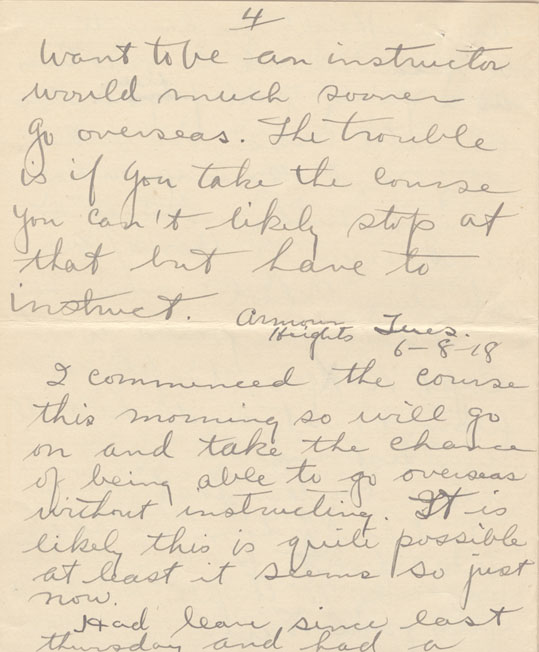 4
Want to be an instructor
would much sooner
go overseas. The trouble
is if you take the course
you can't likely stop at
that but have to
instruct.
Armour
Heights Tues.
6-8-18
I commenced the course
this morning so will go
on and take the chance
of being able to go overseas
without instructing. It is
likely this is quite possible
at least it seems so just
now.
Had leave since last
thursday and had a